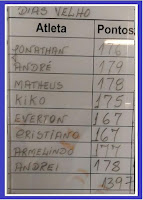 DIAS VELHO
Atleta Pontos
JONATHAN 176
ANDRÉ 179
MATHEUS 178
KIKO 175
EVERTON 167
CRISTIANO 167
ARMELINDO 177
ANDREI 178
1397